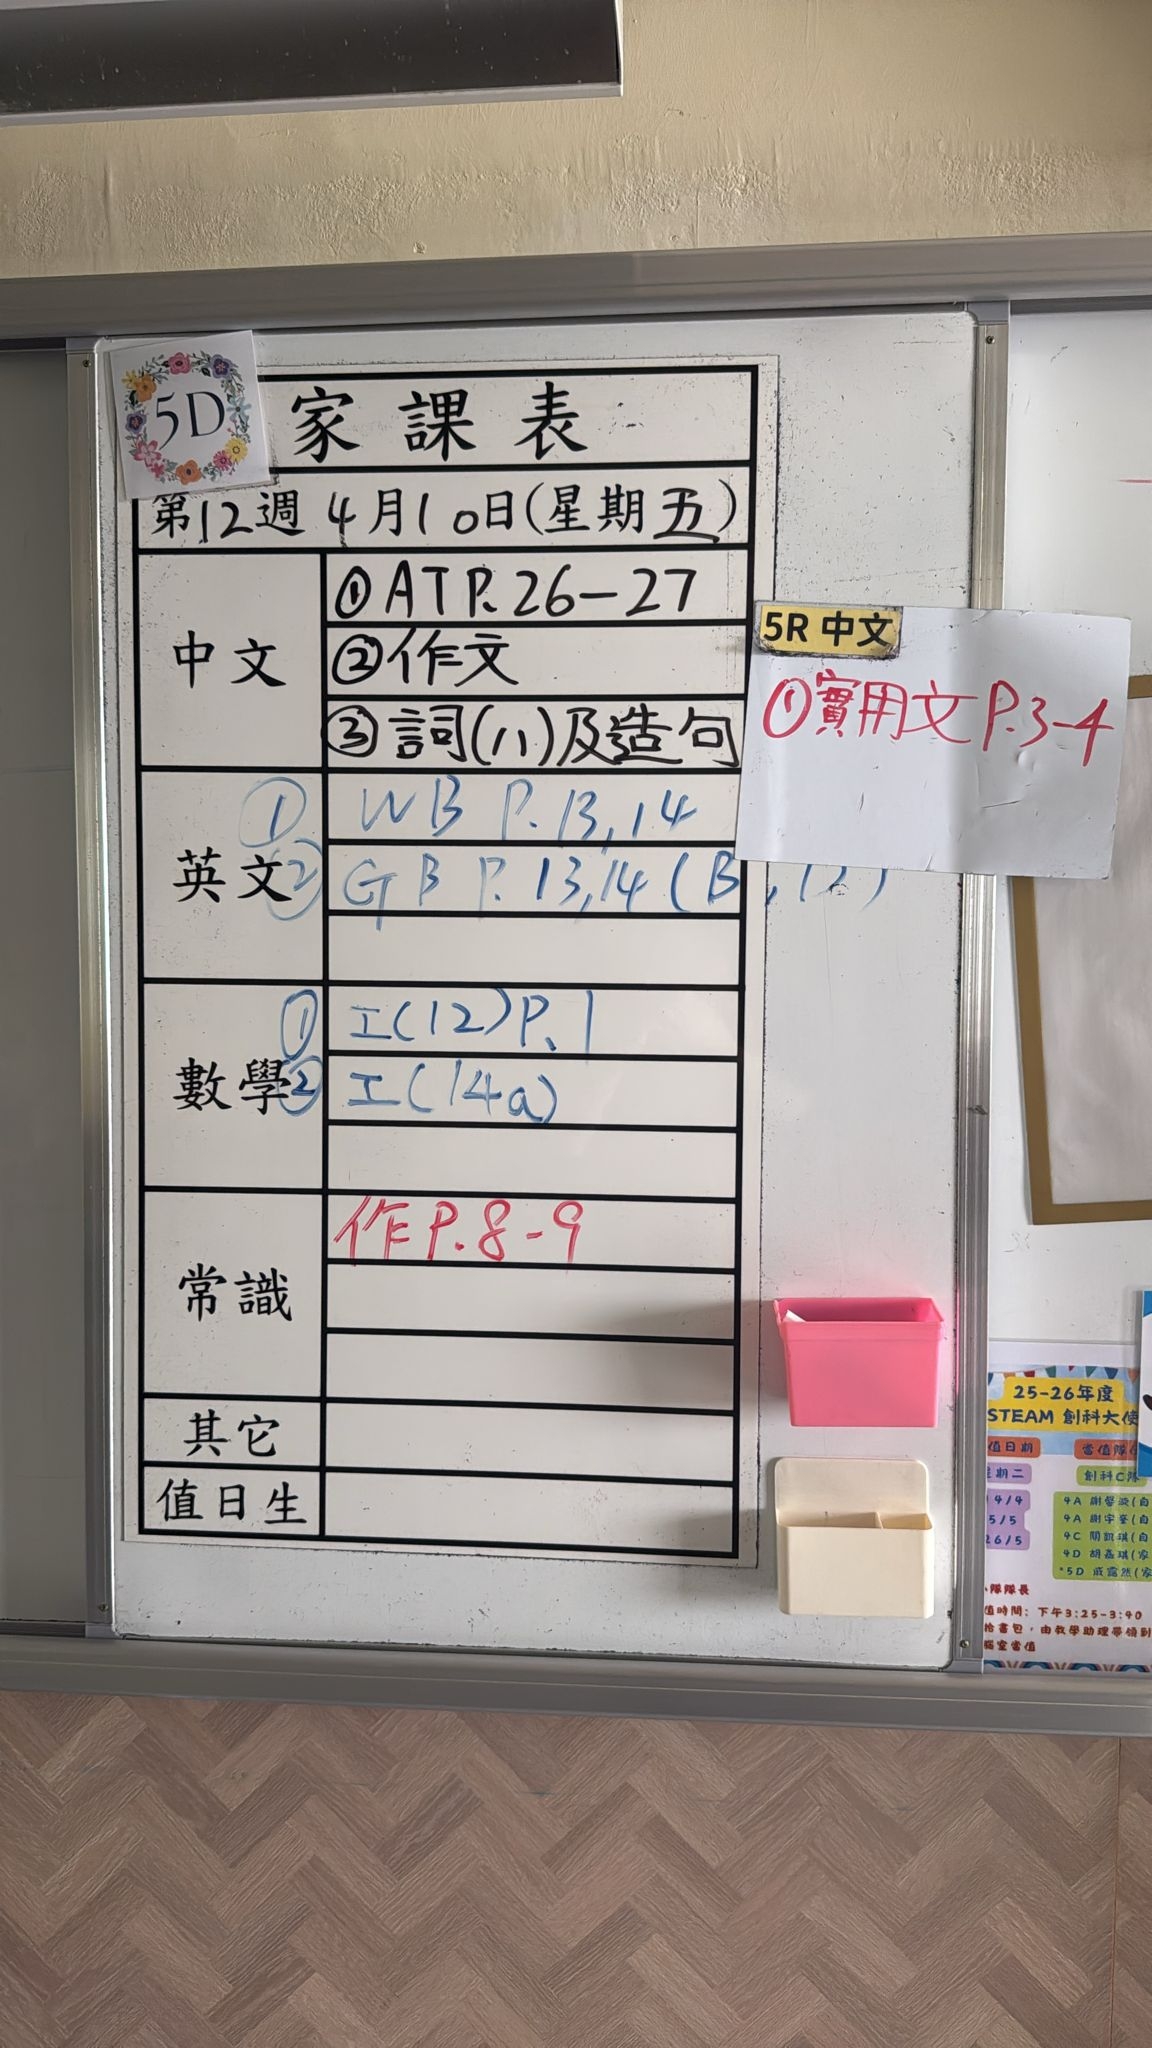 5D
家課表
第12週 4月10日(星期五)
中文
①ATP.26-27
②作文
③詞(八)及造句
5R 中文
①實用文P.3-4
英文
① WB P.13,14
② GB P.13,14(B
數學
① 工(12)P.1
② 工(14a)
常識
作P.8-9
其它
值日生
25-26年度
STEAM 創科大使
值日期
當值隊
期二
創科C隊
14/4
5/5
26/5
4A
4A
4C
4D 胡嘉琪(家
*5D
隊隊長
值時間：下午3:25-3:40
拾書包，由教學助理帶領到
腦室當值